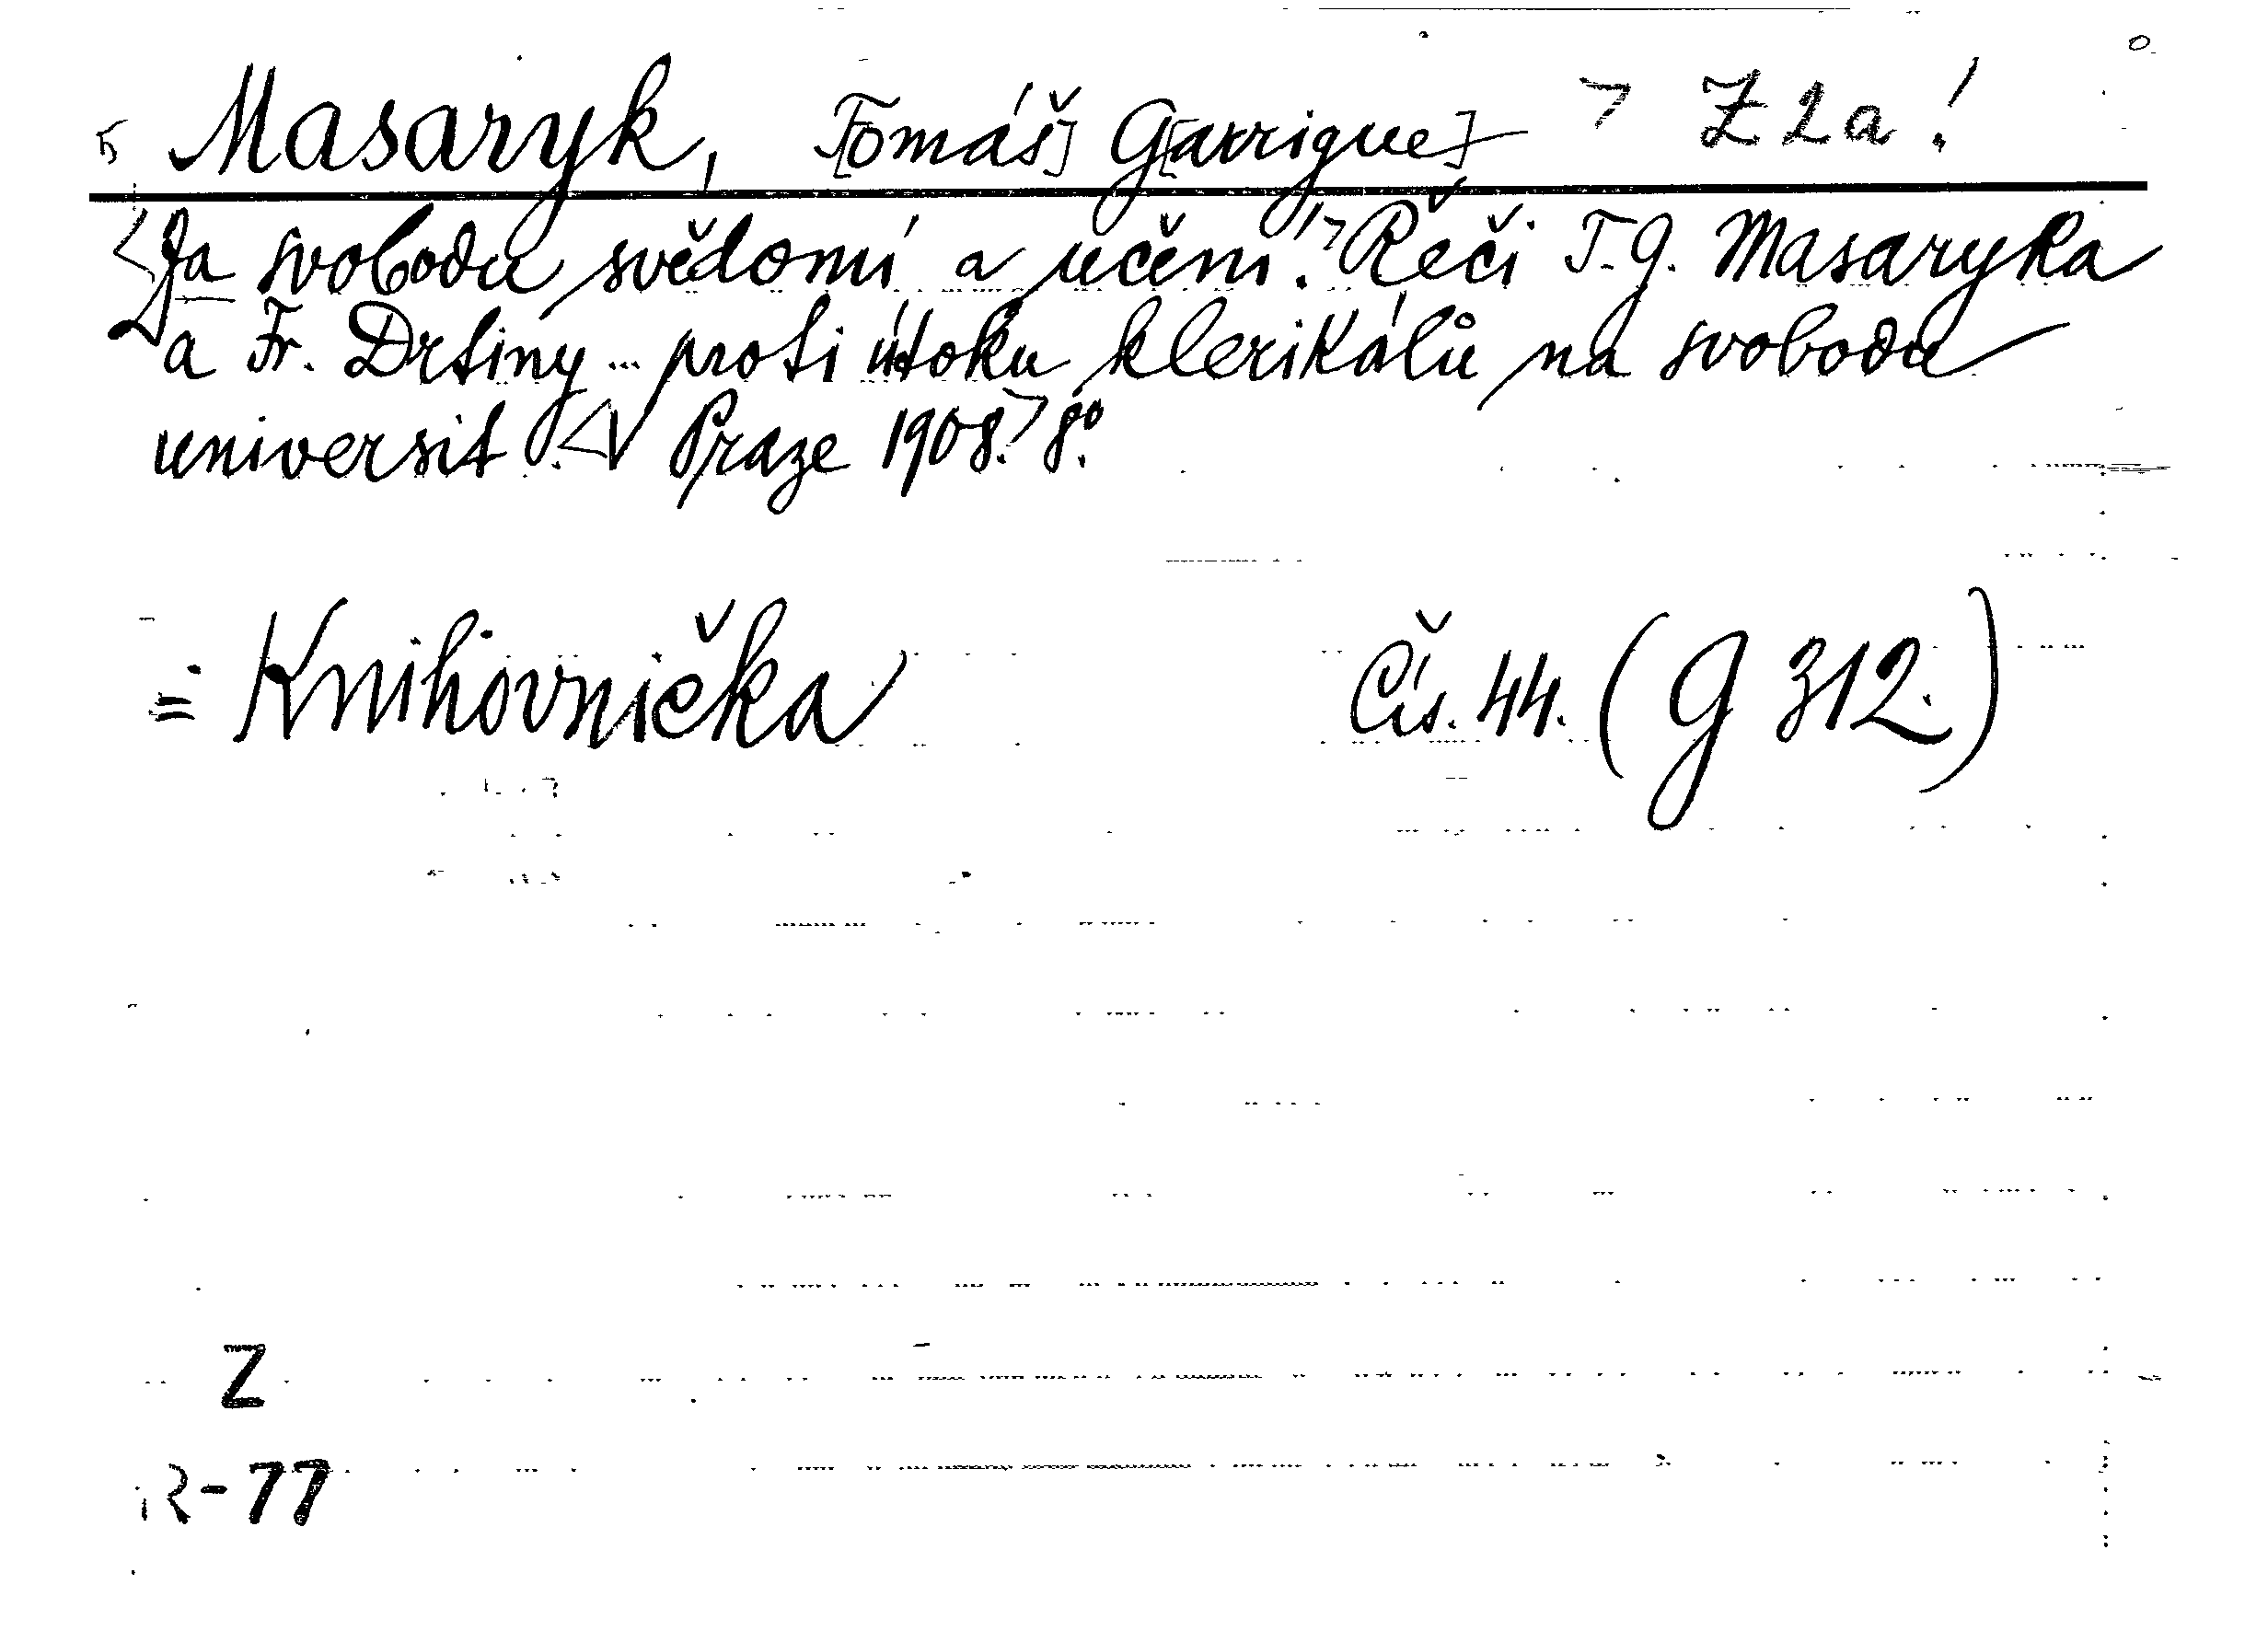 Masaryk, T[omáš] G[arrigue] Z 2a!
Za svobodu svědomí a učení. Řeči T. G. Masaryka
a Fr. Drtiny ... proti útoku klerikálů na svobodu
universit. V Praze 1908. 8°.
= Knihovnička Čís. 44. (G 312.)
Z
R-77